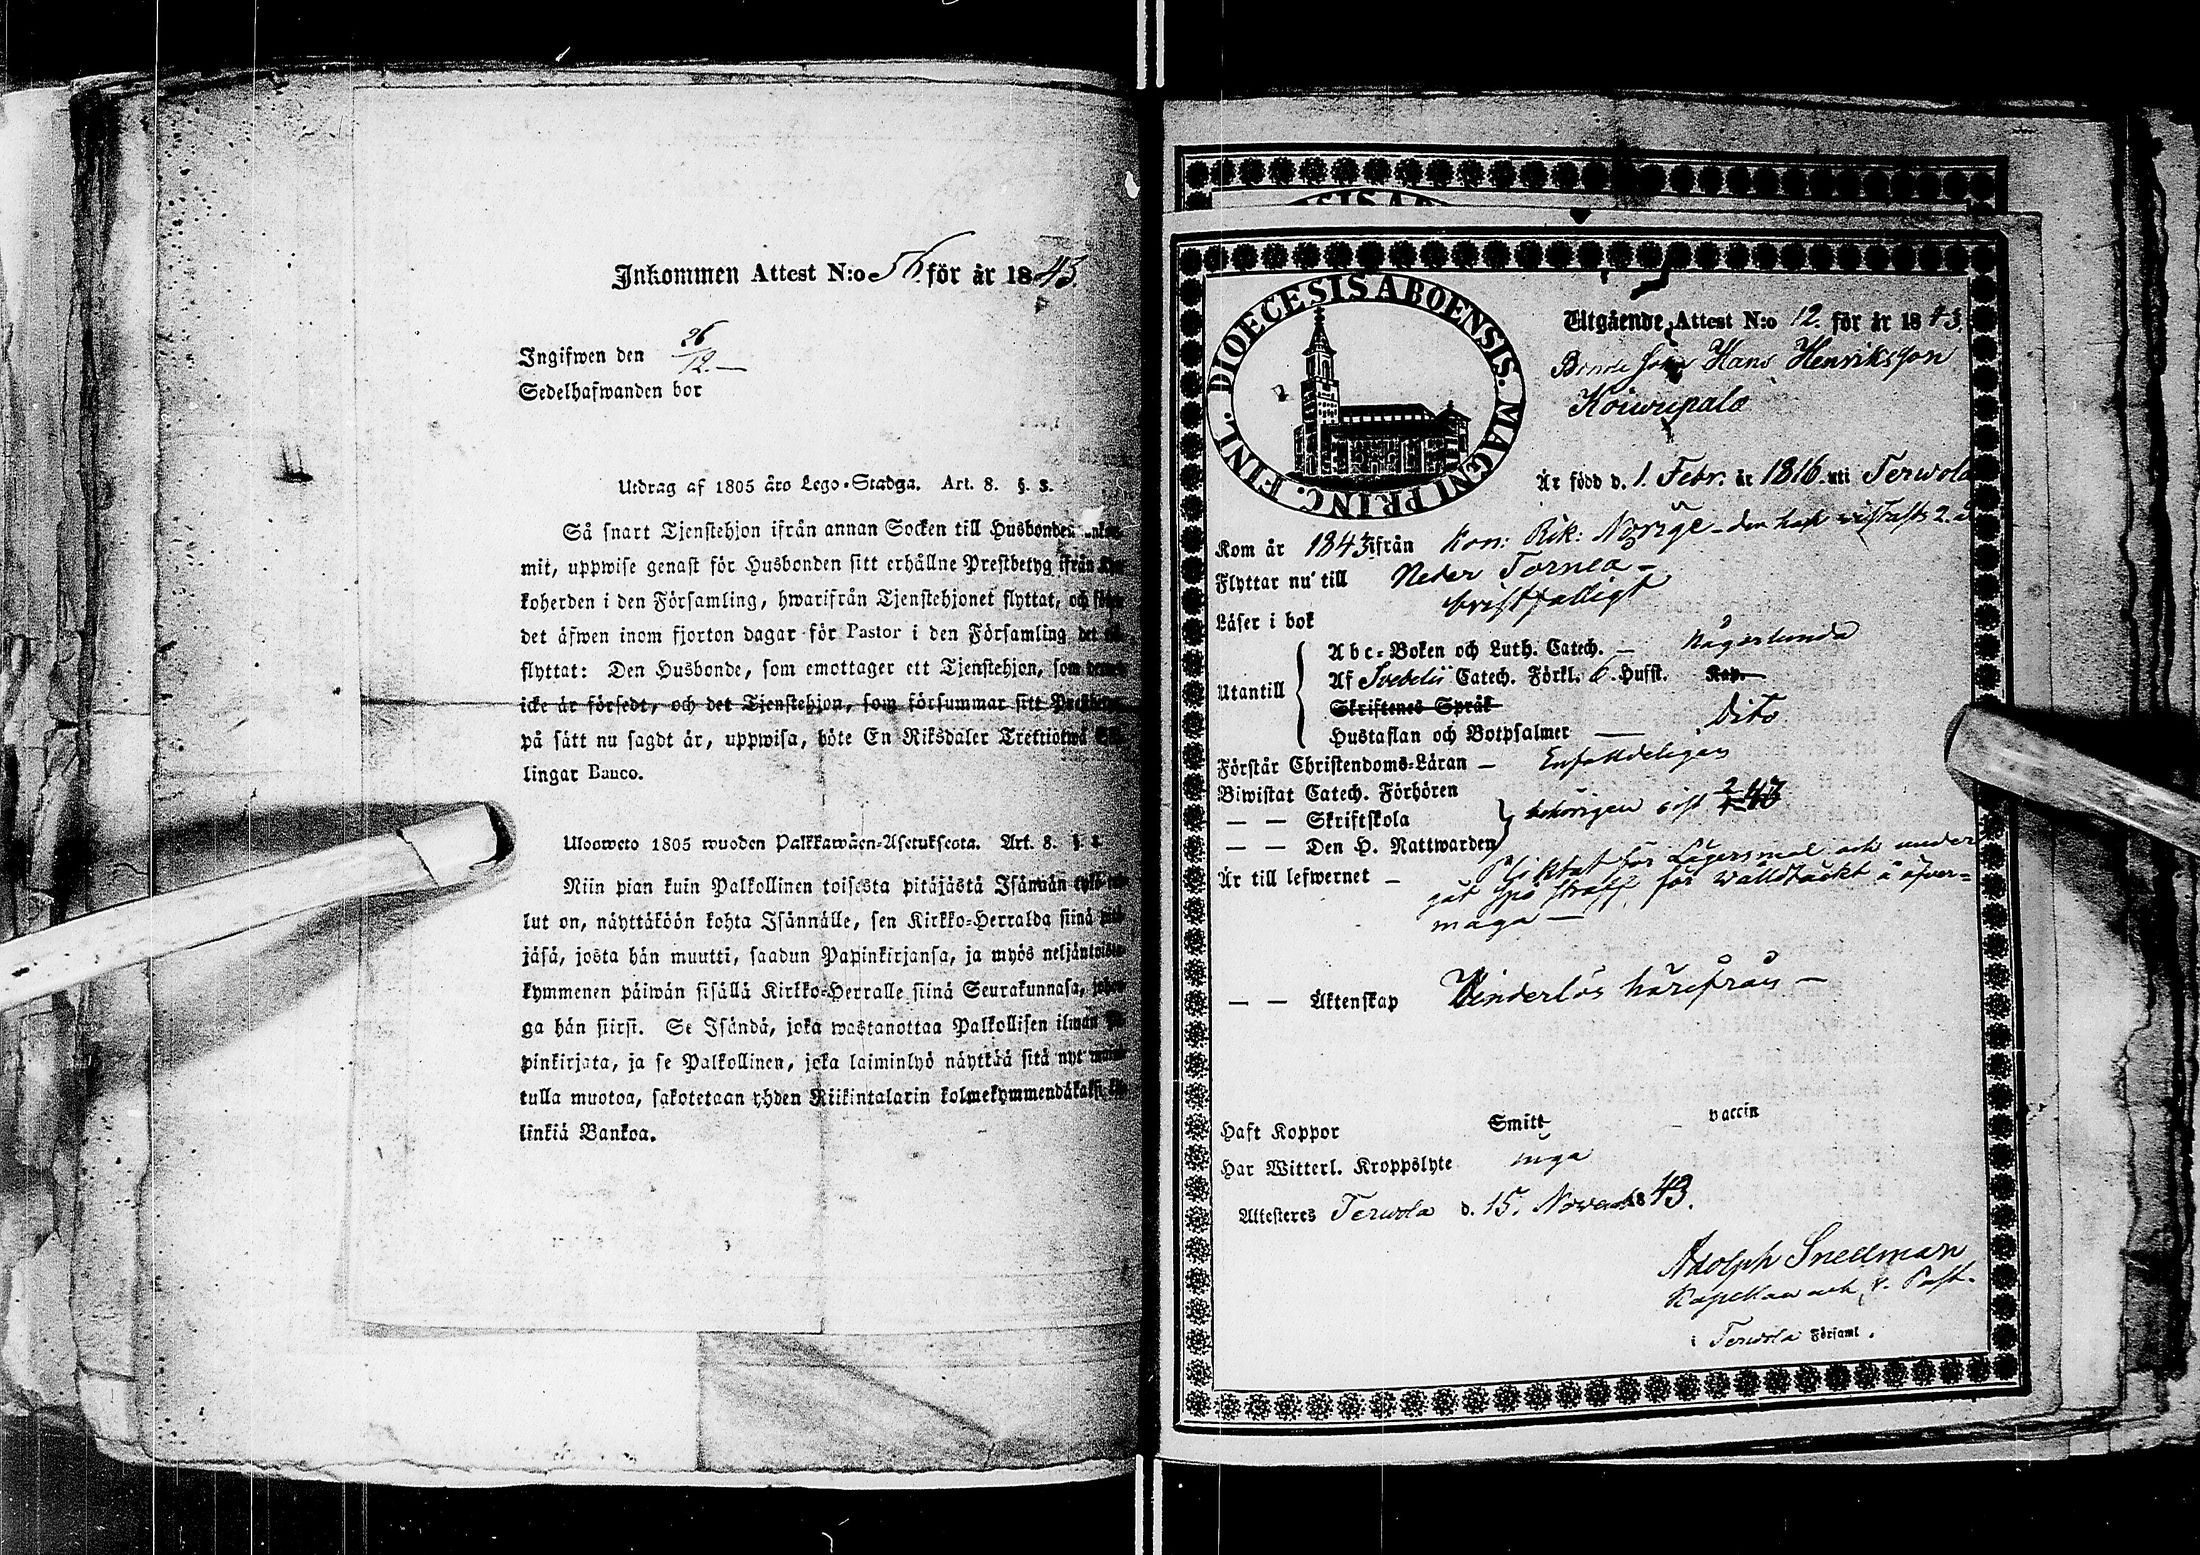 Inkommen Attest N:o 56 för år 1843.
Ingifwen den 26/12.
Sedelhafwanden bor
Utdrag af 1805 års Lego-Stadga. Art. 8. §. 3.
Så snart Tjenstehjon ifrån annan Socken till Husbonden
mit, uppwise genast för Husbonden sitt erhållne Prestbetyg ifrån
koherden i den Församling, hwarifrån Tjenstehjonet flyttat, och
det äfwen inom fjorton dagar för Pastor i den Församling det
flyttat: Den Husbonde, som emottager ett Tjenstehjon, som
icke är försedt, och det Tjenstehjon, som försummar sitt
på sätt nu sagdt är, uppwisa, böte En Riksdaler Trettiotwå
lingar Banco.
Uloosweto 1805 wuoden Palkkawäen-Asetuksesta. Art. 8. §.
Niin pian kuin Palkollinen toisesta pitäjästä Isännän
lut on, näyttäköön kohta Isännälle, sen Kirkko-Herralda siinä
jäsä, josta hän muutti, saadun Papinkirjansa, ja myös
kymmenen päiwän sisällä Kirkko-Herralle siinä Seurakunnasa,
ga hän siirsi. Se Isändä, joka wastanottaa Palkollisen ilman
pinkirjata, ja se Palkollinen, joka laiminlyö näyttää sitä nyt
tulla muotoa, sakotetaan yhden Riikintalarin
linkiä Bankoa.
DIOECESIS ABOENSIS. MAGNI PRINC. FINL.
Utgående Attest N:o 12. för år 1843.
Bonde Hans Henriksson
Koiwupalo
Är född d. 1. Febr. år 1816 uti Terwola
Kom år 1843 ifrån Kon: Rik: Norrige - den han wistats 2. å
Flyttar nu till Neder Tornea -
Läser i bok bristfälligt
Utantill
Abc-Boken och Luth. Catech. — Någorlunda
Af Svebelii Catech. Förkl. 6. Hufst. Kap.
Skriftenes Språk
Hustaflan och Botpsalmer — Dito
Förstår Christendoms-Läran — Enfalldeligen
Biwistat Catech. Förhören
— — Skriftskola behörigen sist
— — Den H. Nattwarden
Är till lefwernet — Pliktat för Lägersmål och under
gåt spö straff för wåldtäckt å ofver-
maga —
— — Äktenskap Hinderlös härifrån —
Haft Koppor Smitt vaccin
Har Witterl. Kroppslyte inga
Attesteres Terwola d. 15. Novemb. 1843.
Adolph Snellman
Kapellan och v. Past.
i Terwola Församl.